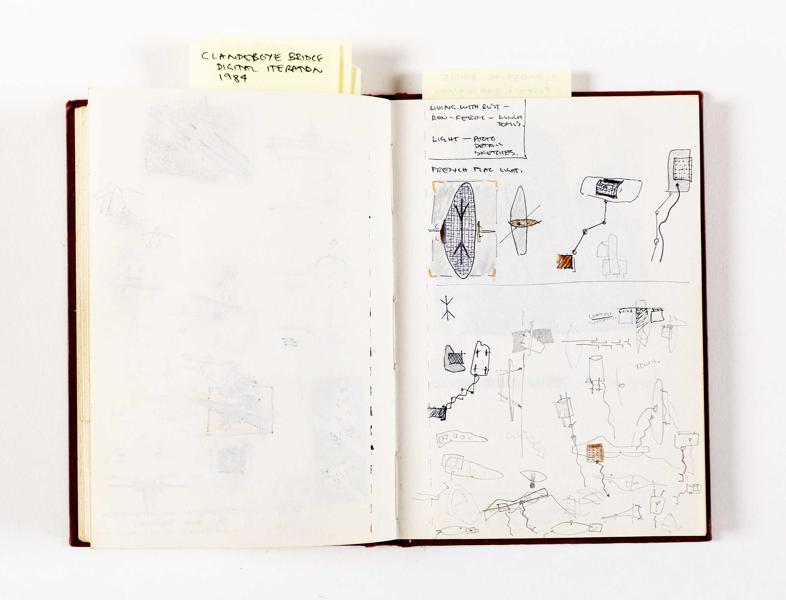 CLANDEBOYE BRIDGE
DIGITAL ITERATION
1984
LIVING WITH RUST –
RON-FERRY – LUNCH
LIGHT – 
DETAILS
SKETCHES.
FRENCH FLAG LIGHT.